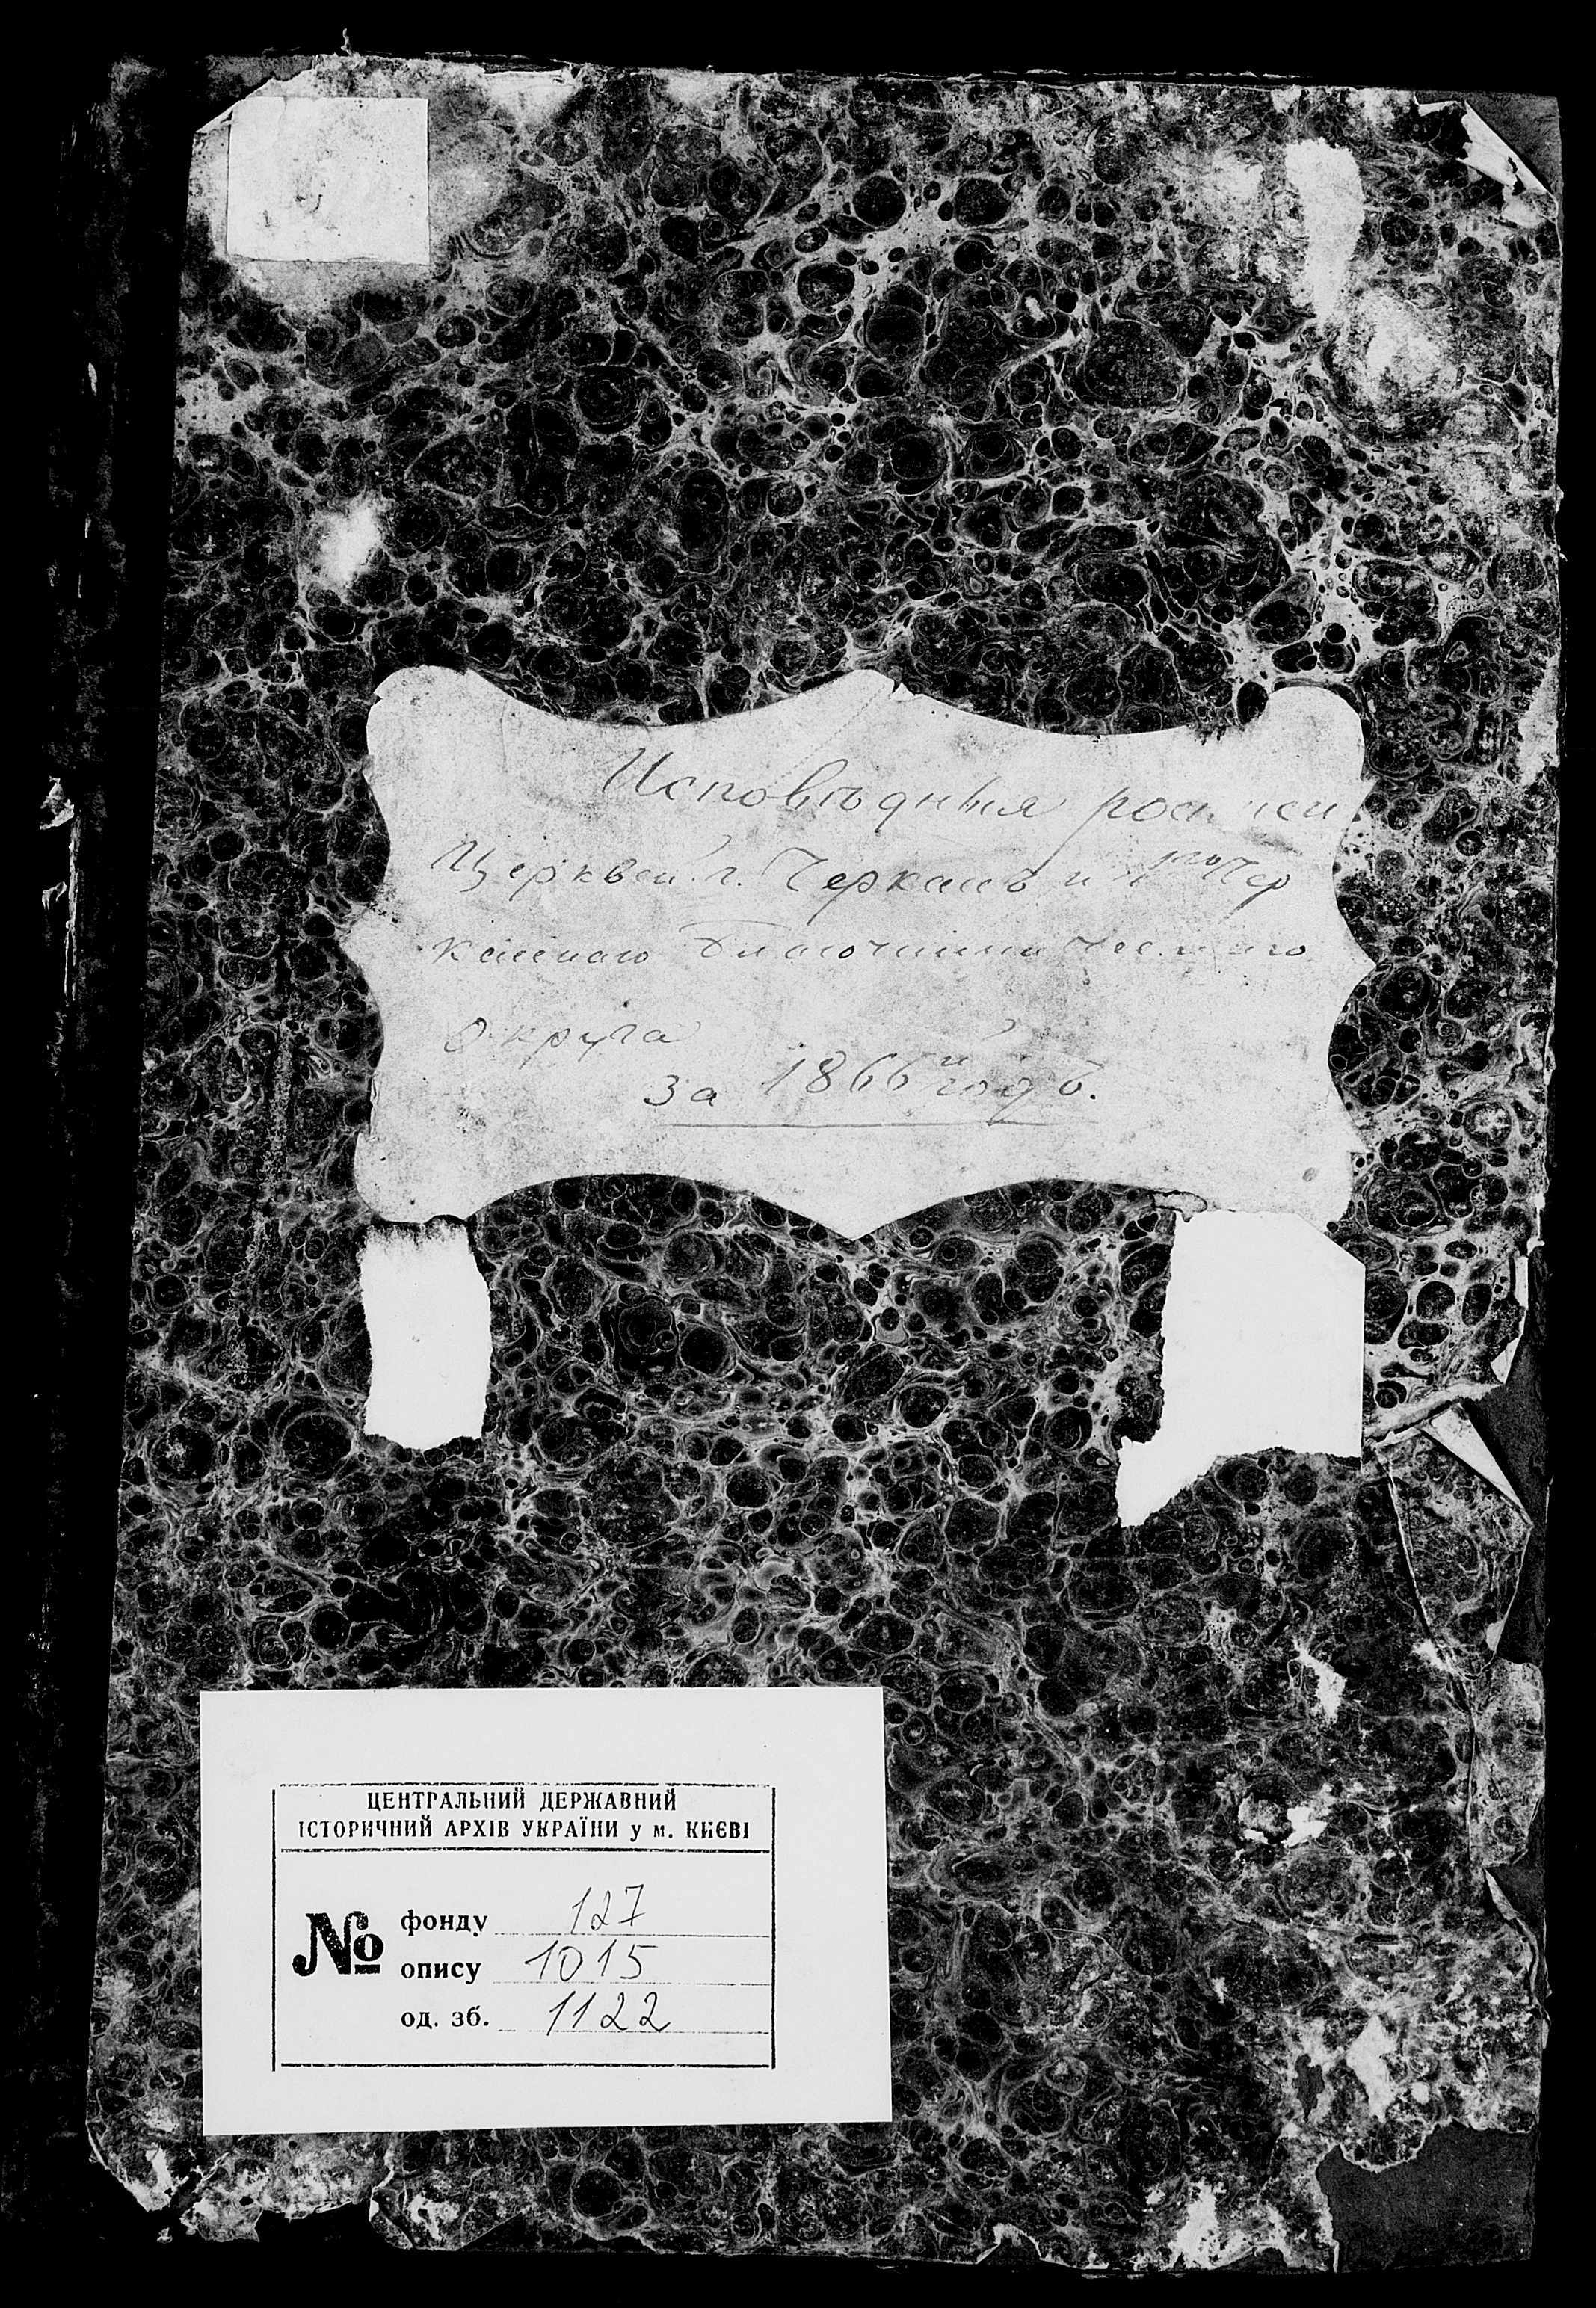 Исповѣдныя росписи
Церквей г. Черкасъ и 1го Чер
каскаго Благочинническаго
Округа
за 1866й годъ.
ЦЕНТРАЛЬНИЙ ДЕРЖАВНИЙ
ІСТОРИЧНИЙ АРХІВ УКРАЇНИ у м. КИЄВІ
№
фонду 127
опису 1015
од. зб. 1122